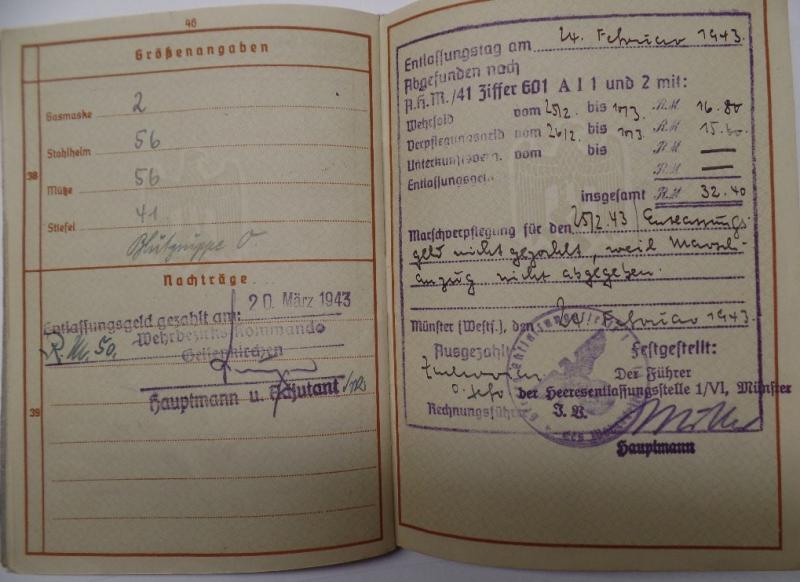 46
Größenangaben
Gasmaske 2
38
Stahlheim 56
Mütze 56
Stiefel 41
Blutgruppe O
Nachträge
Entlassungsgeld gezahlt am: 20. März 1943
R.M. 50. Wehrbezirks-Kommando
Geilenkirchen
Hauptmann u. Adjutant
39
Entlassungstag am 24. Februar 1943.
Abgefunden nach
A.H.M./41 Ziffer 601 A I 1 und 2 mit:
Wehrsold vom 25/2. bis 10/3. RM 16.80
Verpflegungsgeld vom 26/2. bis 10/3. RM 15.60
Unterkunftsentsch. vom bis RM —
Entlassungsgeld RM —
insgesamt RM 32.40
Marschverpflegung für den 25/2.43/Entlassungs-
geld nicht gezahlt, weil Marsch-
anzug nicht abgegeben.
Münster (Westf.), den 24. Februar 1943.
Ausgezahlt Festgestellt:
Der Führer
der Heeresentlassungsstelle 1/VI, Münster
Rechnungsführer I. V.
Hauptmann